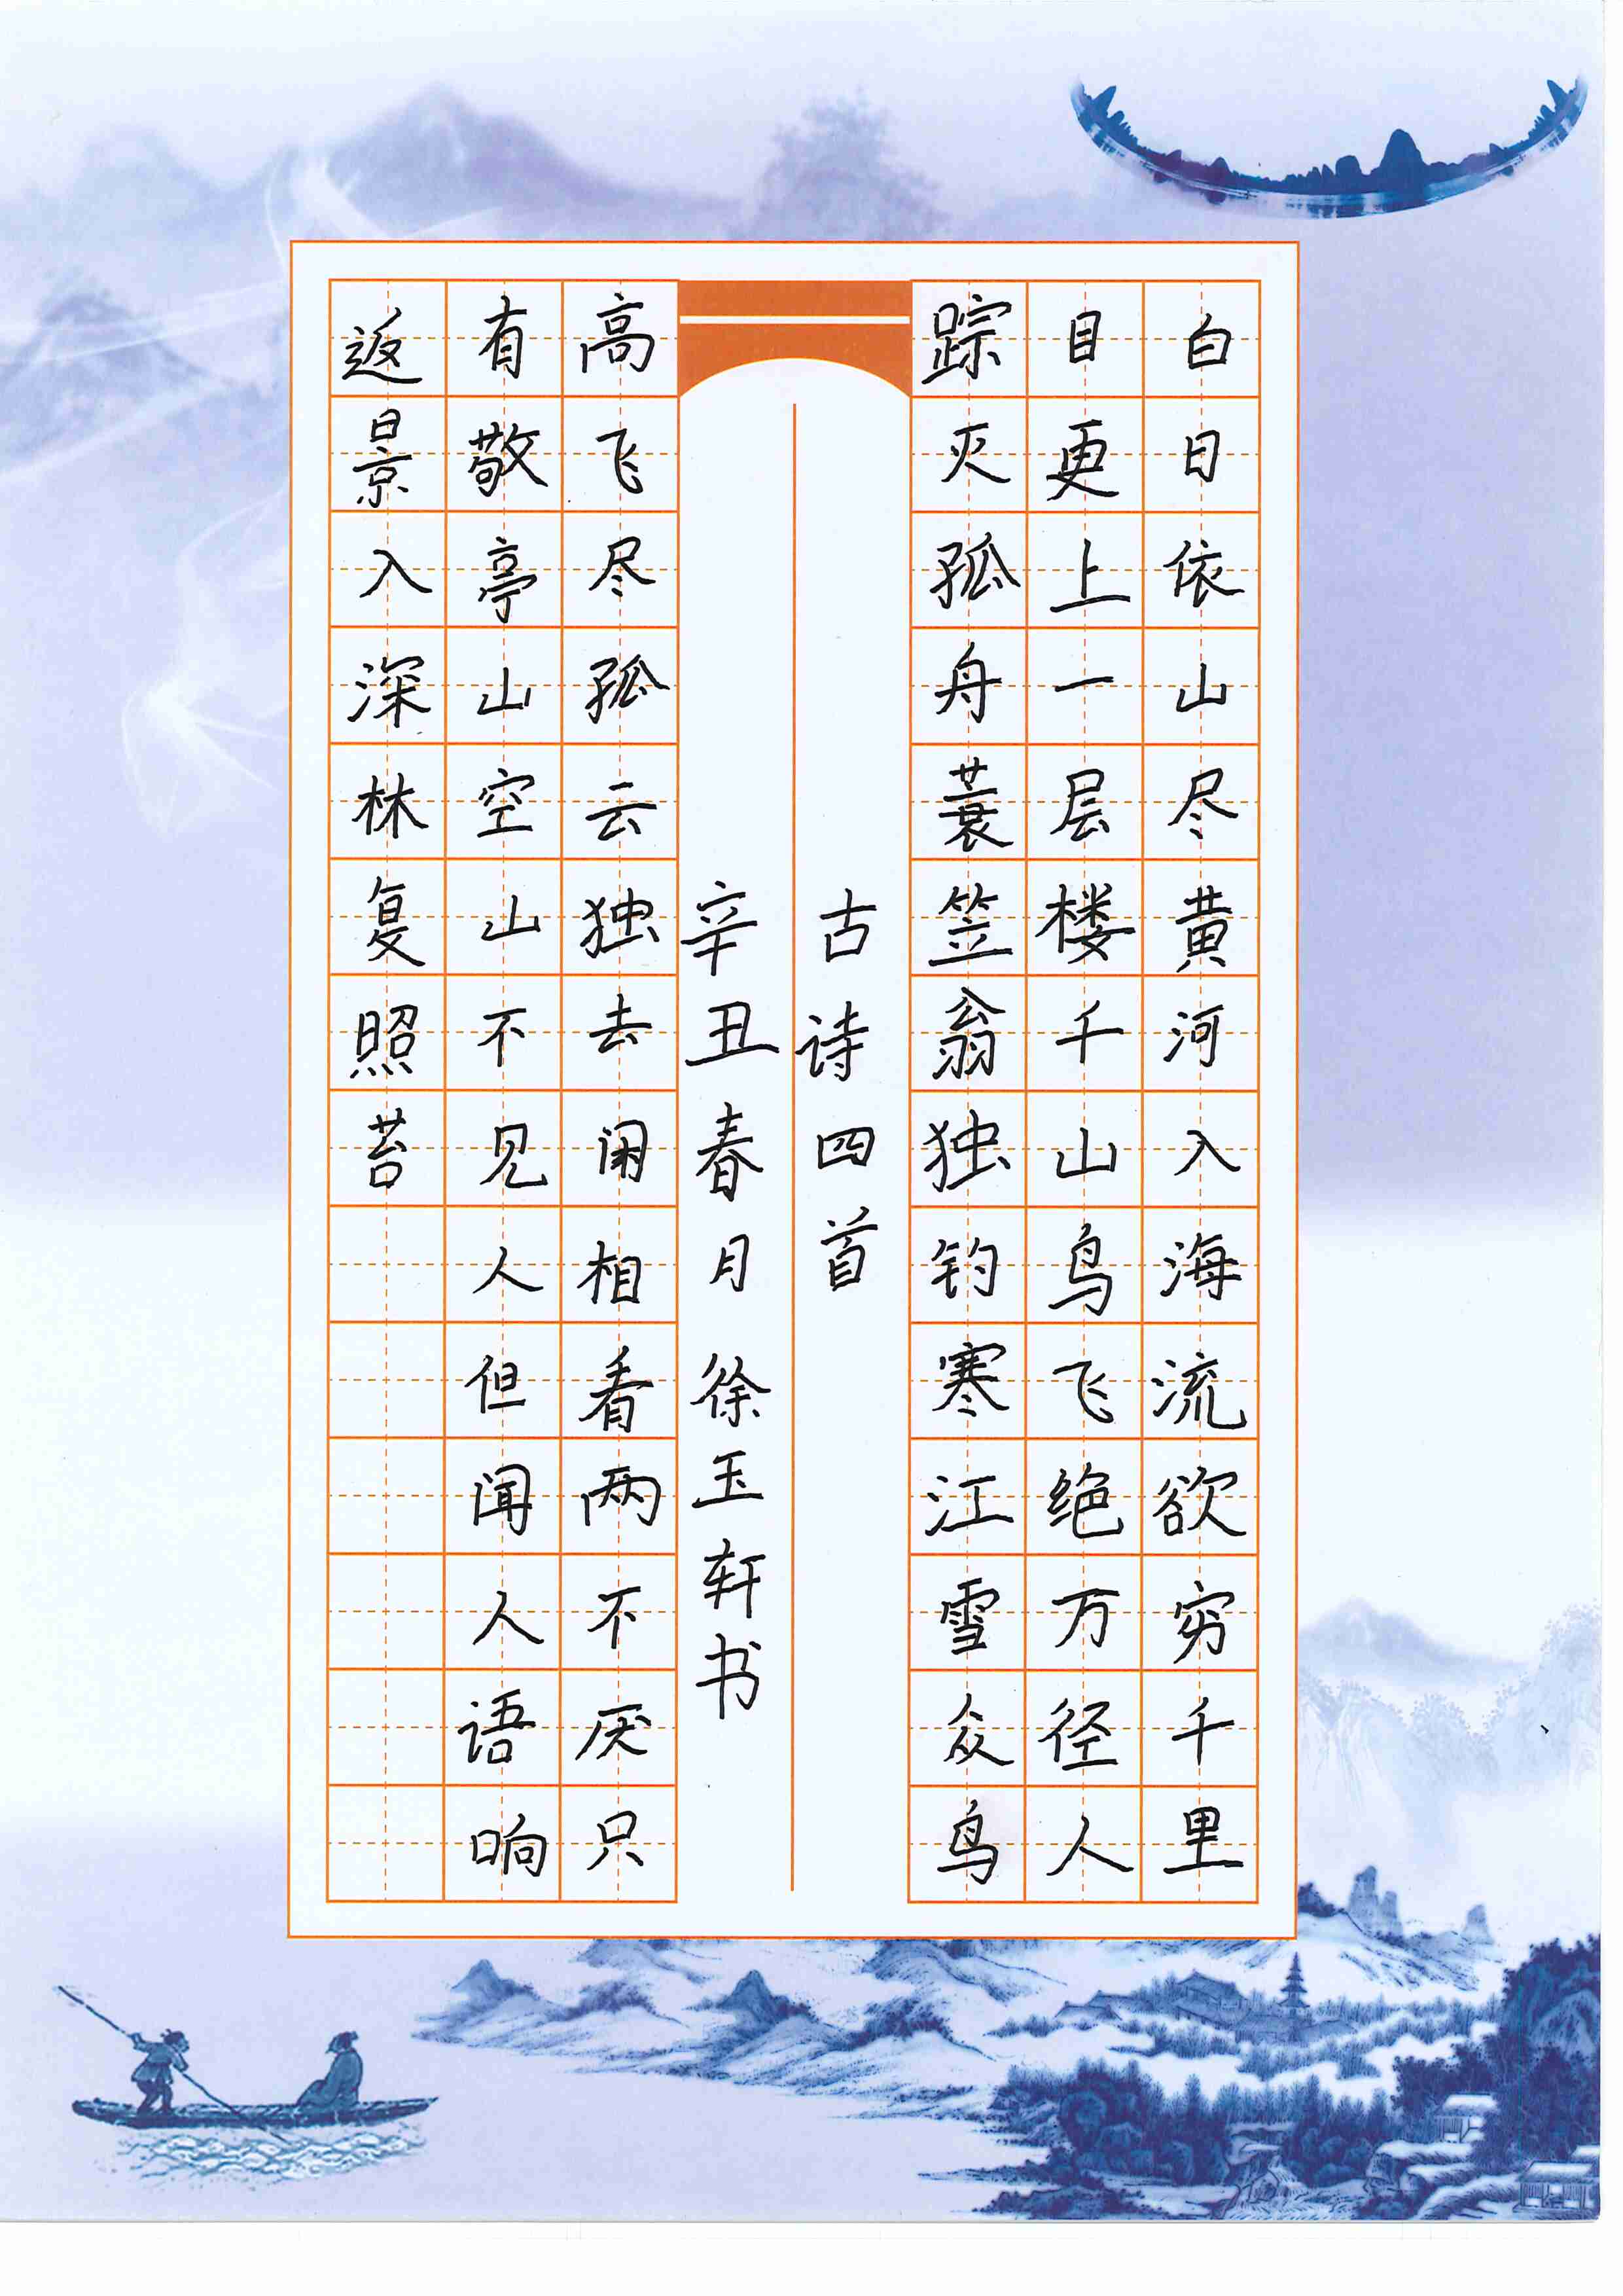 白日依山尽黄河入海流欲穷千里
目更上一层楼千山鸟飞绝万径人
踪灭孤舟蓑笠翁独钓寒江雪众鸟
古诗四首
辛丑春月徐玉轩书
高飞尽孤云独去闲相看两不厌只
有敬亭山空山不见人但闻人语响
返景入深林复照苔